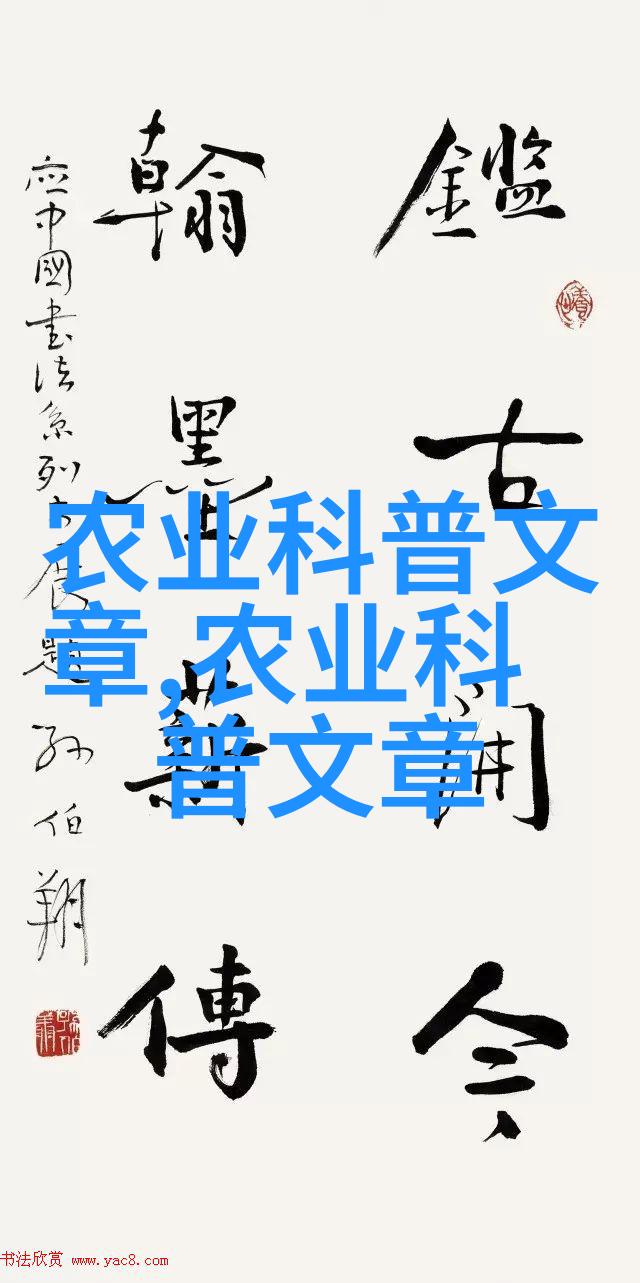 鑑古開今
翰墨薪傳
應中國書法系列大展題
孙伯翔
农业科普文
章,农业科
普文章
书法欣赏 www.yac8.com